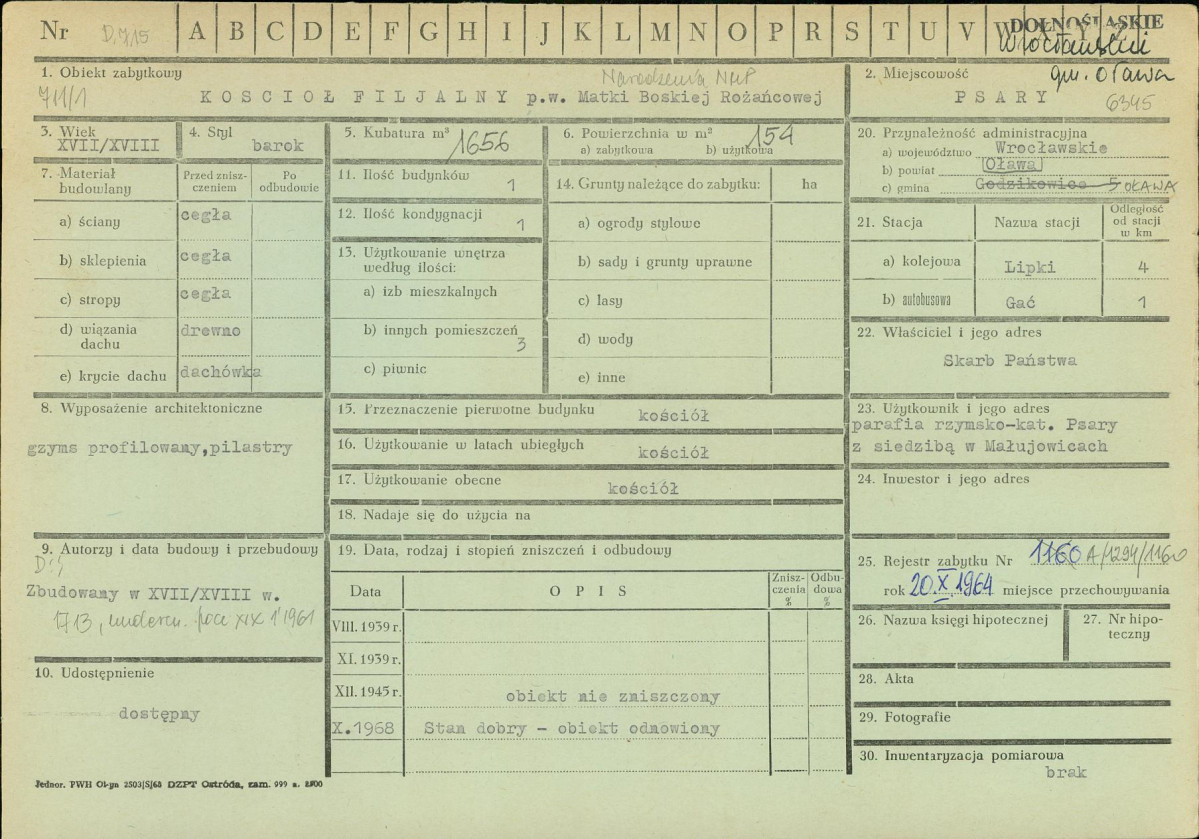 Nr D.715 A B C D E F G H I J K L M N O P R S T U V W X Y Z
DOLNOŚLĄSKIE
Wrocławskie
gm. Oława
1. Obiekt zabytkowy
711/1
Narodzenia NMP
KOSCIOŁ FILJALNY p.w. Matki Boskiej Rożańcowej
2. Miejscowość
PSARY
6345
3. Wiek
XVII/XVIII
4. Styl
barok
5. Kubatura m³
1656
6. Powierzchnia w m²
154
a) zabytkowa b) użytkowa
7. Materiał budowlany
Przed zniszczeniem
Po odbudowie
a) ściany cegła
b) sklepienia cegła
c) stropy cegła
d) wiązania dachu drewno
e) krycie dachu dachówka
8. Wyposażenie architektoniczne
gzyms profilowany,pilastry
9. Autorzy i data budowy i przebudowy
Zbudowany w XVII/XVIII w.
1713, pocz XIX 1961
10. Udostępnienie
dostępny
11. Ilość budynków
1
12. Ilość kondygnacji
1
13. Użytkowanie wnętrza
według ilości:
a) izb mieszkalnych
b) innych pomieszczeń
3
c) piwnic
14. Grunty należące do zabytku: ha
a) ogrody stylowe
b) sady i grunty uprawne
c) lasy
d) wody
e) inne
15. Przeznaczenie pierwotne budynku
kośćiół
16. Użytkowanie w latach ubiegłych
kośćiół
17. Użytkowanie obecne
kośćiół
18. Nadaje się do użycia na
19. Data, rodzaj i stopień zniszczeń i odbudowy
Data OPIS Zniszczenia % Odbudowa %
VIII. 1939 r.
XI. 1939 r.
XII. 1945 r. obiekt nie zniszczony
X.1968 Stan dobry - obiekt odnowiony
20. Przynależność administracyjna
a) województwo Wrocławskie
b) powiat Oława
c) gmina Godzikowice OŁAWA
21. Stacja Nazwa stacji Odległość od stacji w km
a) kolejowa Lipki 4
b) autobusowa Gać 1
22. Właściciel i jego adres
Skarb Państwa
23. Użytkownik i jego adres
parafia rzymsko-kat. Psary
z siedzibą w Małujowicach
24. Inwestor i jego adres
25. Rejestr zabytku Nr 1160 A/1294/1160
rok 20.X.1964 miejsce przechowywania
26. Nazwa księgi hipotecznej
27. Nr hipoteczny
28. Akta
29. Fotografie
30. Inwentaryzacja pomiarowa
brak
Jednor. PWH Ol-yn 2503/S/68 DZPT Ostróda, zam. 999 n.